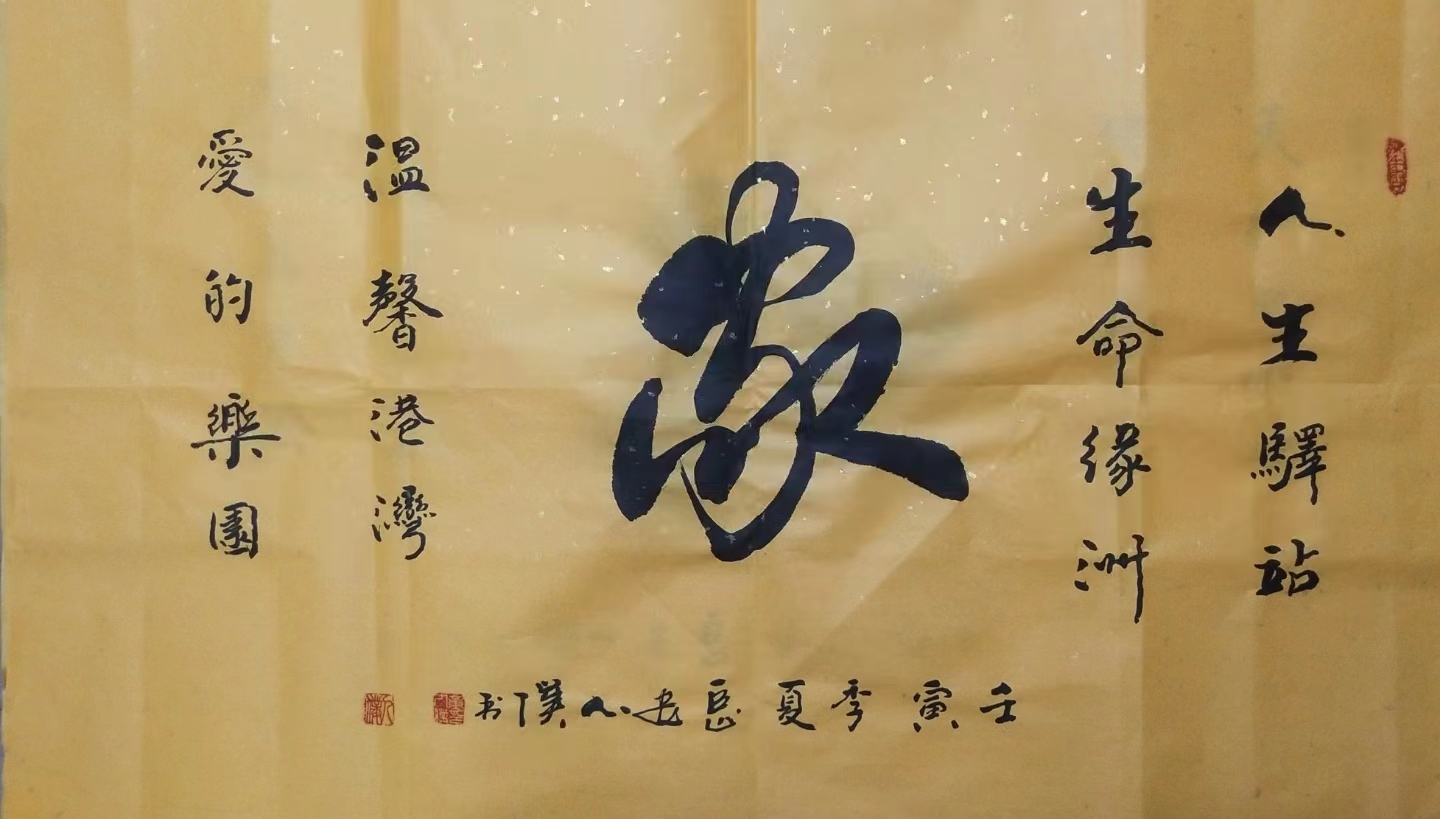 人生驛站
生命緣洲
家
溫馨港灣
愛的樂園
壬寅季夏岳老人撲书